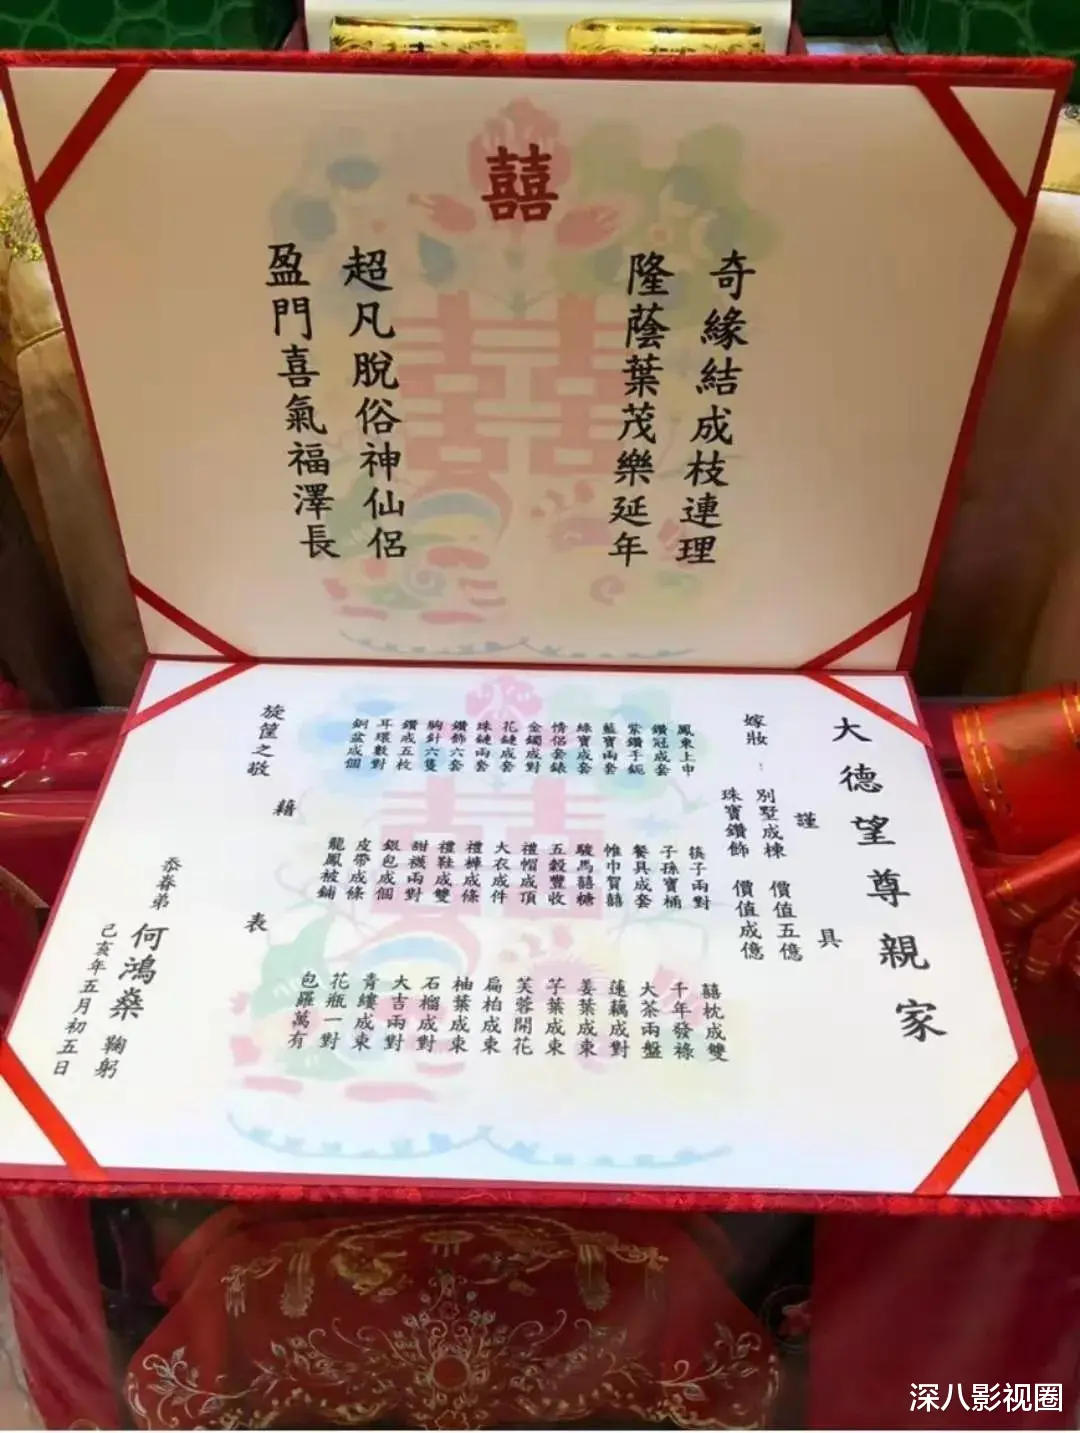 囍
奇緣結成枝連理
隆蔭葉茂樂延年
超凡脫俗神仙侶
盈門喜氣福澤長
大德望尊親家
謹具
嫁妝
別墅成棟 價值五億
珠寶鑽飾 價值成億
鳳東上巾
鑽冠成套
紫鑽手鈪
藍寶兩套
綠寶成套
情侶套錶
金鐲成對
花鏈成套
珠鏈兩套
鑽飾六套
胸針六隻
鑽戒五枚
耳環數對
銅盆成個
筷子兩對
子孫寶桶
餐具成套
帷巾賀囍
駿馬囍糖
五穀豐收
禮帽成頂
大衣成件
禮褲成條
禮鞋成雙
甜襪兩對
銀包成個
皮帶成條
龍鳳被鋪
囍枕成雙
千年發祿
大茶兩盤
蓮藕成對
姜葉成束
芋葉成束
芙蓉開花
扁柏成束
柚葉成束
石榴成對
大吉兩對
青縷成束
花瓶一對
包羅萬有
藉表
旋筐之敬
忝眷弟 何鴻燊 鞠躬
己亥年五月初五日
深八影视圈